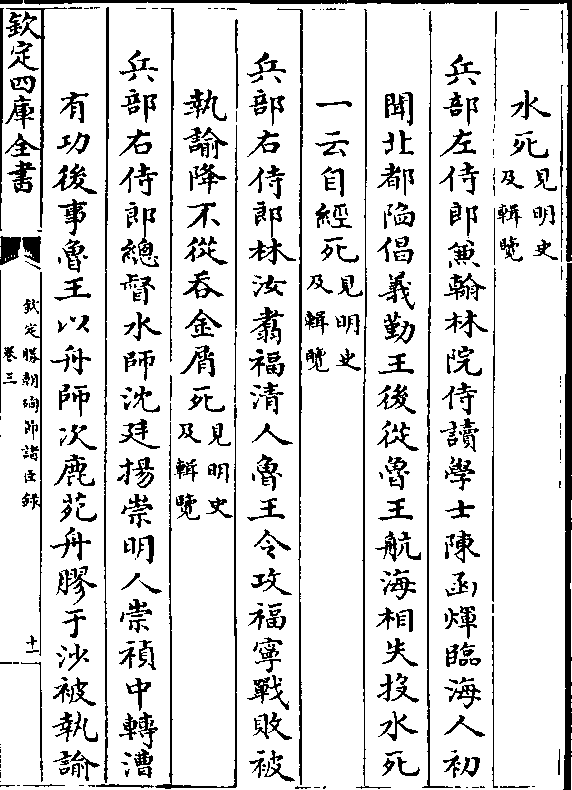 水死見明史及輯覽
兵部左侍郎兼翰林院侍讀學士陳函煇臨海人初
聞北都陷倡義勤王後從魯王航海相失投水死
一云自經死見明史及輯覽
兵部右侍郎林汝翥福清人魯王令攻福寧戰敗被
執諭降不從吞金屑死見明史及輯覽
兵部右侍郎總督水師沈廷揚崇明人崇禎中轉漕
有功後事魯王以舟師次鹿苑舟膠于沙被執諭
欽定四庫全書
欽定勝朝殉節諸臣録
卷三
十一